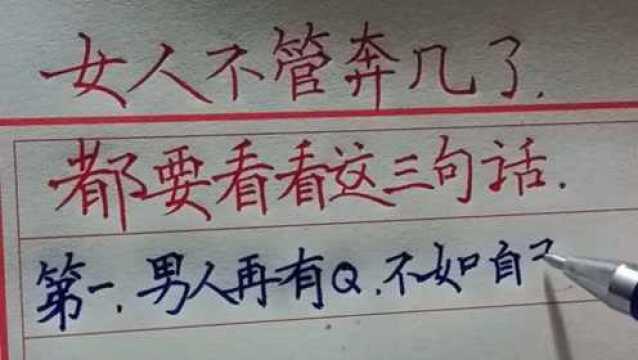 女人不管奔几了.
都要看看这三句话.
第一.男人再有Q.不如自